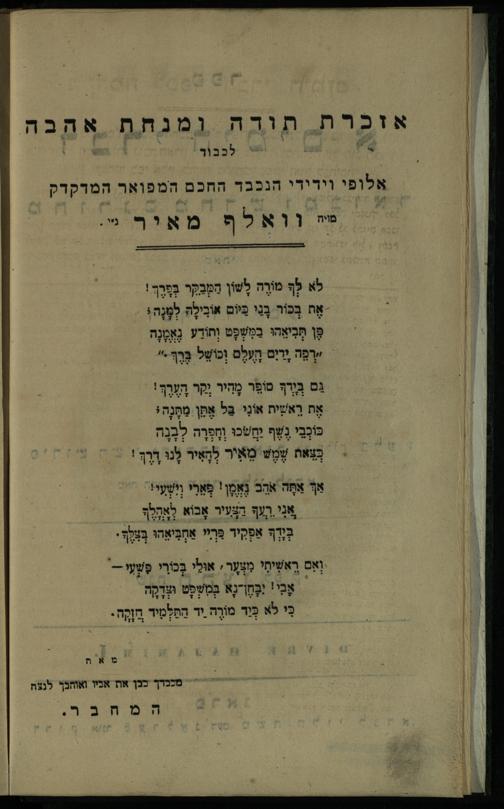 אזכרת תודה ומנחת אהבה
לכבוד
אלופי וידידי הנכבד החכם המפואר המדקדק
מו״ה וואלף מאיר נ״י .
לֹא לְךָ מוֹרֶה לָשׁוֹן הַמְבַקֵּר בְּפָרֶךְ!
אֶת בְּכוֹר בָּנַי כַּיּוֹם אוֹבִילָה לְמָנָה;
פֶּן תְּבִיאֵהוּ בַמִּשְׁפָּט וְתוֹדַע נֶאֱמָנָה
״רְפֵה יָדַיִם הָעֶלֶם וְכוֹשֵׁל בֶּרֶךְ.״
גַּם בְּיָדְךָ סוֹפֵר מָהִיר יְקַר הָעֶרֶךְ!
אֶת רֵאשִׁית אוֹנִי בַּל אֶתֵּן מַתָּנָה;
כּוֹכְבֵי נֶשֶׁף יֶחְשְׁכוּ וְחָפְרָה לְבָנָה
כְּצֵאת שֶׁמֶשׁ מֵאִיר לְהָאִיר לָנוּ דָרֶךְ!
אַךְ אַתָּה אֹהֵב נֶאֱמָן! פְּאֵרִי וְיִשְׁעִי!
אֲנִי רֵעֲךָ הַצָּעִיר אָבוֹא לְאָהֳלֶךָ
בְּיָדְךָ אַפְקִיד פִּרְיִי אַחְבִּיאֵהוּ בְּצִלֶּךָ.
וְאִם רֵאשִׁיתִי מִצְעָר, אוּלַי בְּכוֹרִי פִּשְׁעִי —
אָבִי! יִבָּחֶן־נָא בְּמִשְׁפָּט וּצְדָקָה
כִּי לֹא כְּיַד מוֹרֶה יַד הַתַּלְמִיד חֲזָקָה.
מאת
מכבדך כבן את אביו ואוהבך לנצח
המחבר.